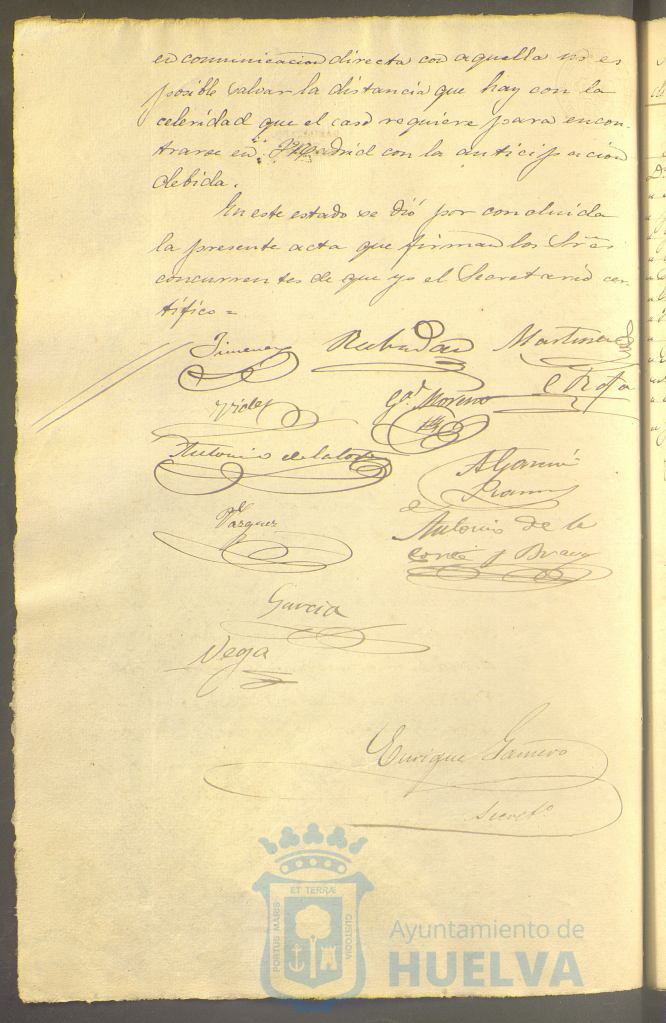 en comunicacion directa con aquella no es
posible salvar la distancia que hay con la
celeridad que el caso requiere para encon-
trarse en Madrid con la anticipacion
debida.
En este estado se dió por concluida
la presente acta que firman los Sres
concurrentes de que yo el Secretario cer-
tifico =
Jimenez Martinez
Gª Moreno
Antonio de la
A Garcia
Vazquez
Antonio de la
Corte y Bravo
Garcia
Vega
Enrique Gamero
Secretº
ET TERRÆ
PORTUS MARIS
CUSTODIA
Ayuntamiento de
HUELVA